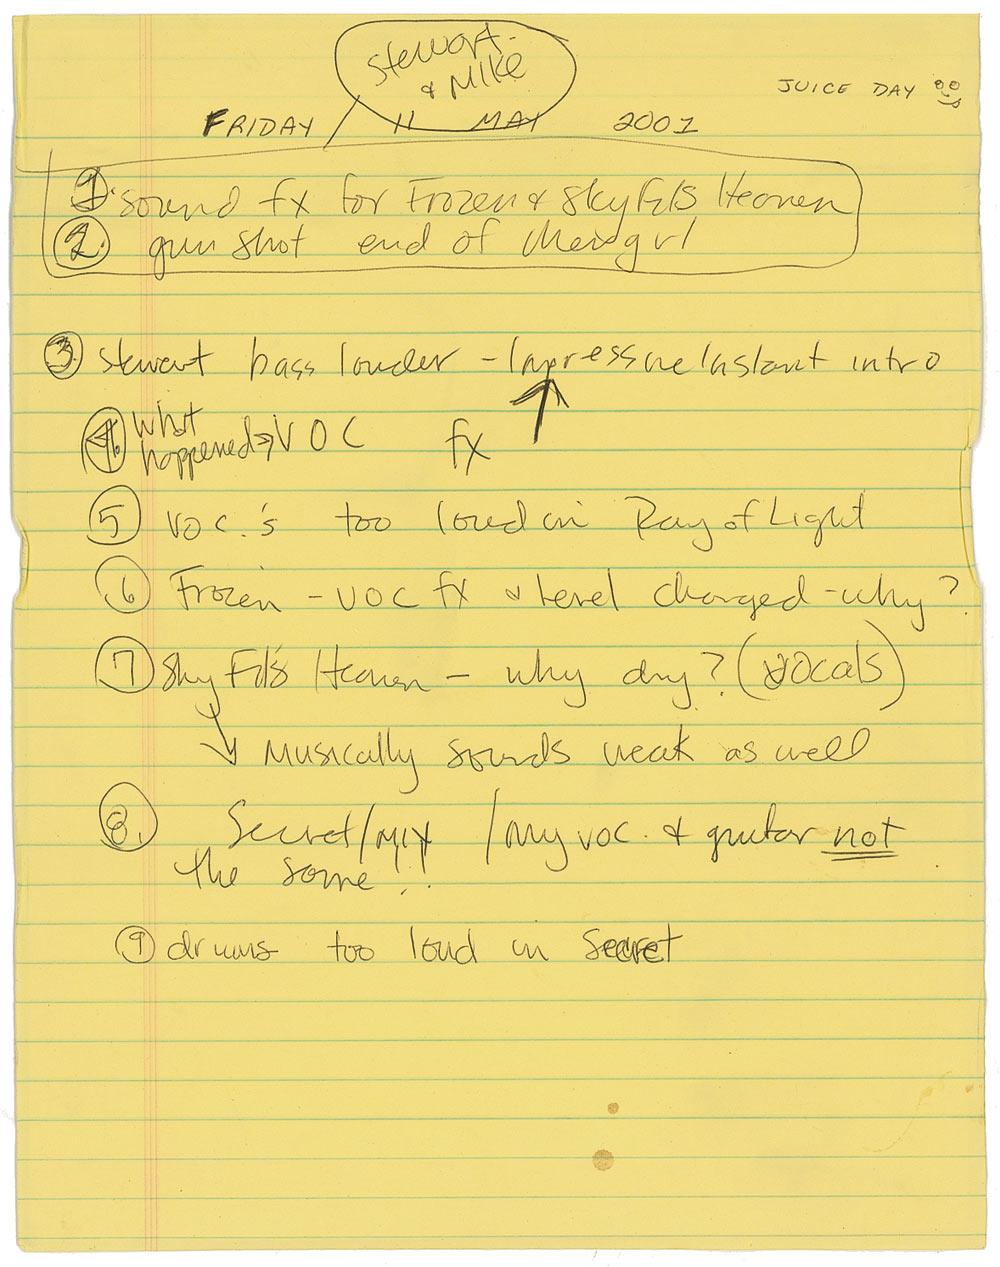 Stewart
& Mike
JUICE DAY
FRIDAY 11 MAY 2001
1. sound fx for Frozen & Sky Fits Heaven
2. gun shot end of Mer girl
3. Stewart bass louder - Impressive Instant intro
4. what happened → VOC fx
5 voc.'s too loud in Ray of Light
6 Frozen - voc fx & level changed - why?
7 Sky Fits Heaven - why dry? (vocals)
Musically sounds weak as well
8. Secret/mix /my voc. & guitar not
the same!!
9 drums too loud in Secret